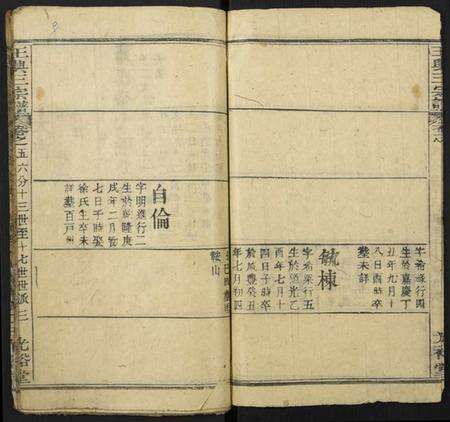 王興三宗譜
光裕堂
行四
生於嘉慶丁
丑年九月十
日酉時卒
葬未詳
毓棟
字希榮行五
生於道光乙
酉年七月十
四日子時卒
於咸豐癸丑
年七月初四
鞍山
自倫
字明遵行二
生於乾隆庚
戌年二月
七日子時娶
徐氏生卒未
詳葬百戶
王興三宗譜 卷之五 六分十三世至十七世世派 三 光裕堂